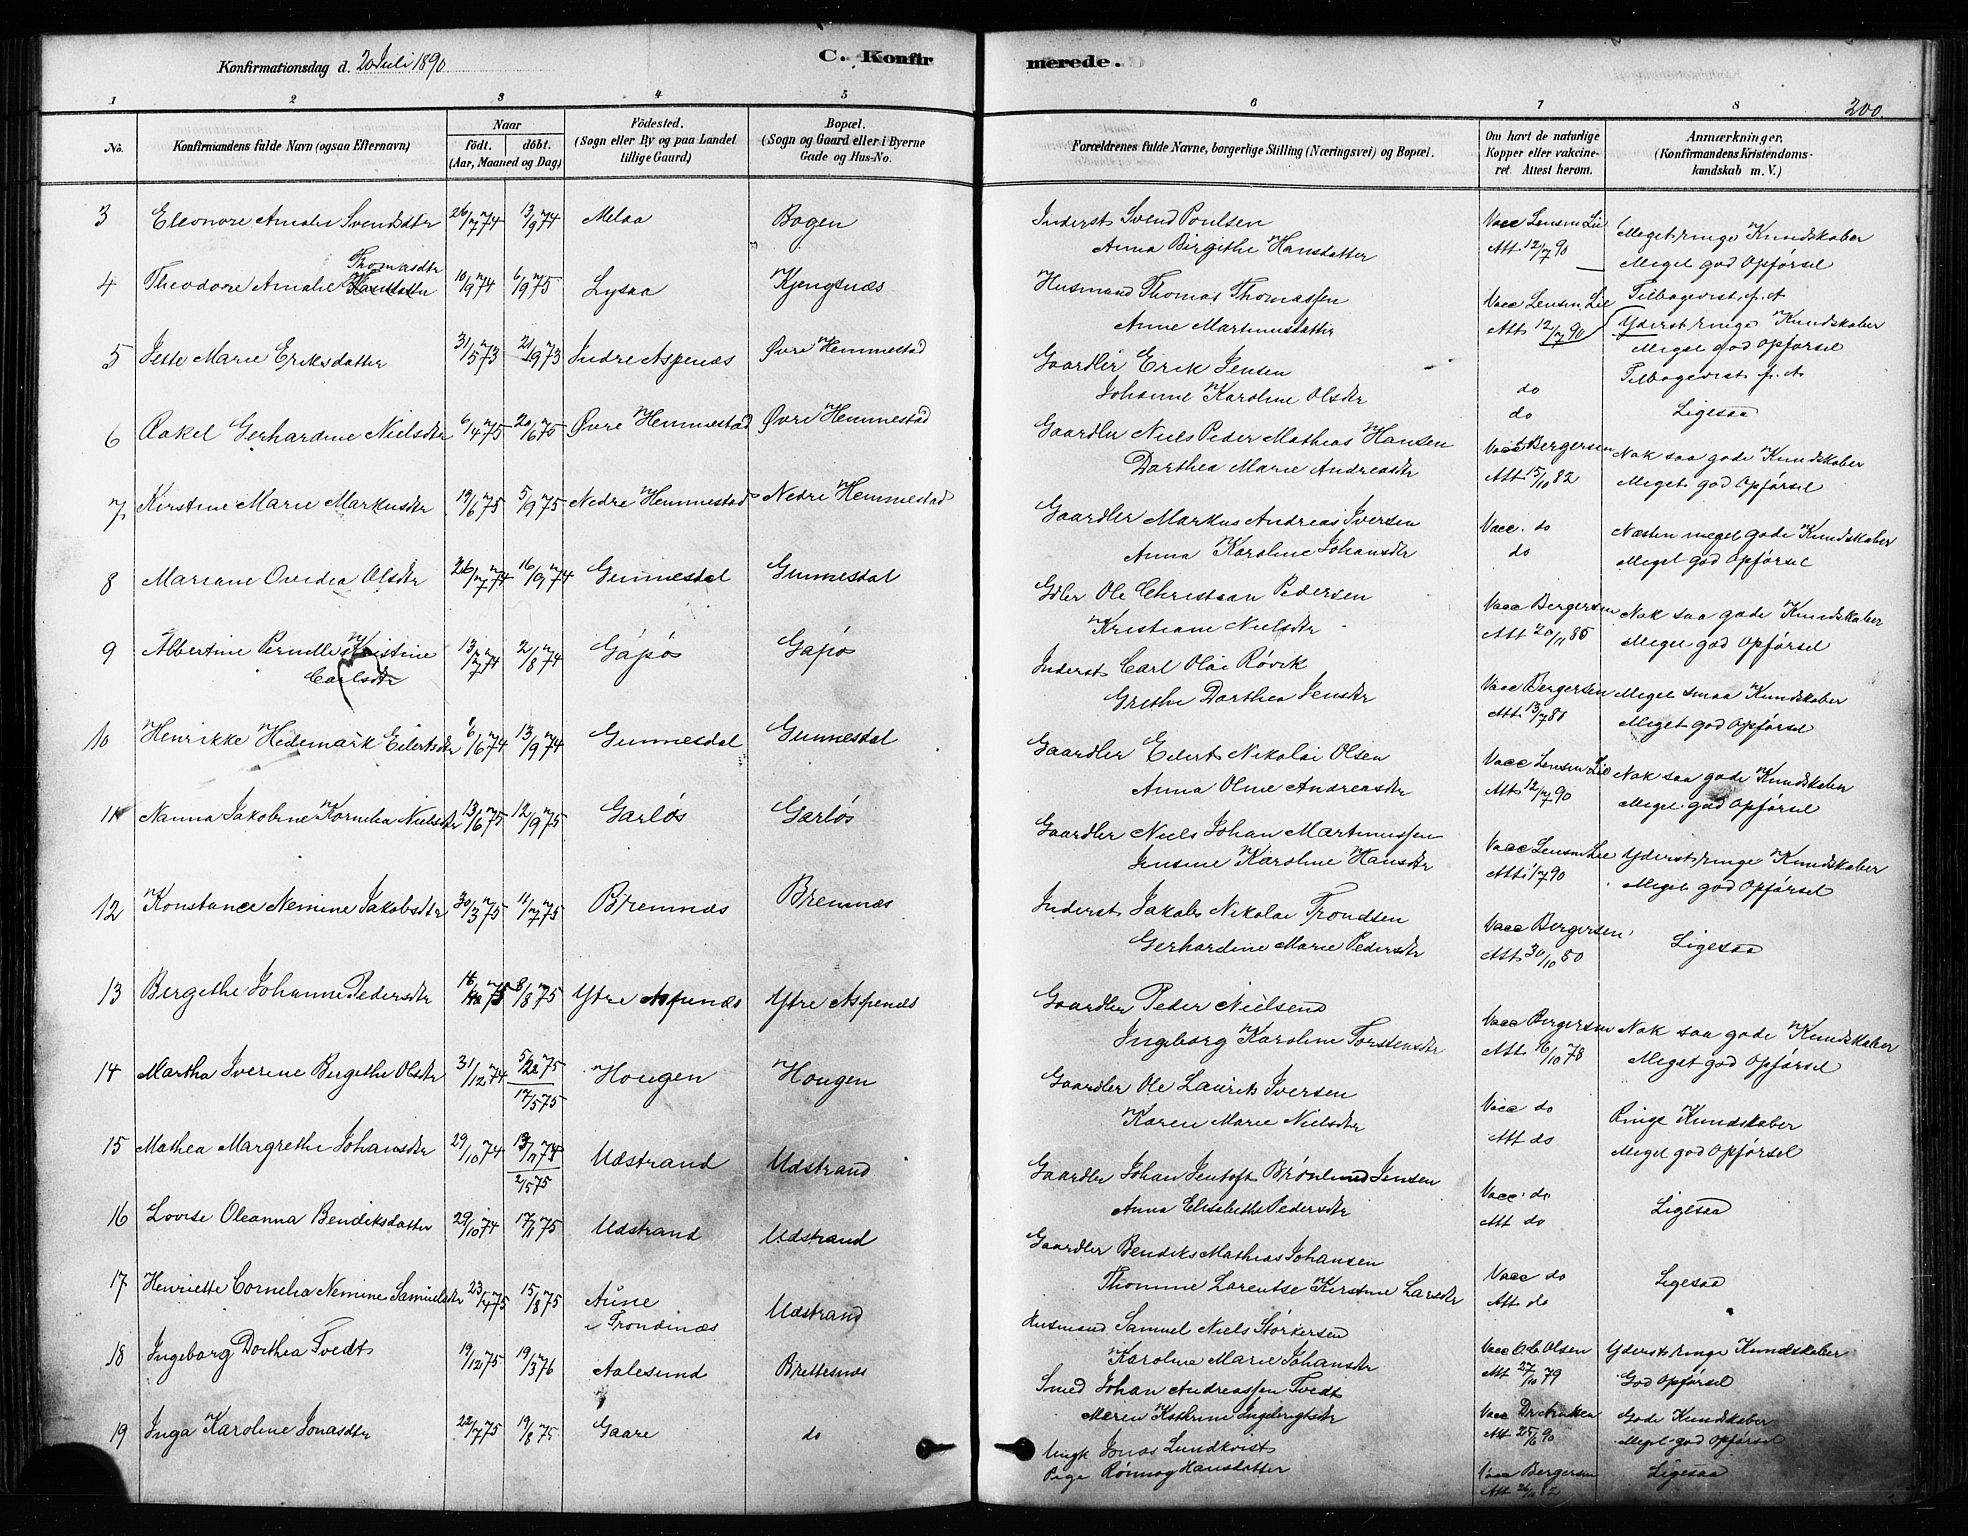 Konfirmationsdag d. 20 Juli 1890
C. Konfirmerede.
200.
1 2 3 4 5 6 7 8
No.
Konfirmandens fulde Navn (ogsaa Efternavn)
Naar
födt. döbt.
(Aar, Maaned og Dag)
Födested.
(Sogn eller By og paa Landet
tillige Gaard)
Bopæl.
(Sogn og Gaard eller i Byerne
Gade og Hus-No.
Forældrenes fulde Navne, borgerlige Stilling (Næringsvei) og Bopæl.
Om havt de naturlige
Kopper eller vakcine-
ret. Attest herom.
Anmærkninger.
(Konfirmandens Kristendoms-
kundskab m. V.)
3 Eleonore Amalie Svendsdtr 26/7 74 13/9 74 Melaa Bogen Inderst Svend Poulsen Vacc Lensm Lie Meget ringe Kundskaber
Anna Birgithe Hansdatter Att 12/7 90 Meget god Opførsel
Thomasdtr
4 Theodore Amalie 10/9 74 6/9 75 Lysaa Kjengsnæs Husmand Thomas Thomassen Vacc Lensm. Lie Tilbagevist f. A
Anne Martinusdatter Att 12/7 90 Yderst ringe Kundskaber
Meget god Opførsel
5 Jette Marie Eriksdatter 31/5 73 21/9 73 Indre Aspenæs Øvre Hemmestad Gaardbr Erik Jensen do Tilbagevist f. A
Johanne Karoline Olsdtr do Ligesaa
6 Rakel Gerhardine Nielsdtr 6/4 75 20/6 75 Øvre Hemmestad Øvre Hemmestad Gaardbr Niels Peder Mathias Hansen Vacc Bergersen Nok saa gode Kundskaber
Dorthea Marie Andreasdtr Att 15/10 82 Meget god Opførsel
7 Kirstine Marie Markusdtr 19/6 75 5/9 75 Nedre Hemmestad Nedre Hemmestad Gaardbr Markus Andreas Iversen Vacc. do Næsten meget gode Kundskaber
Anna Karoline Johansdtr do Meget god Opførsel
8 Mariane Ovidia Olsdtr 26/7 74 16/9 74 Gunnesdal Gunnesdal Gdbr Ole Christian Pedersen Vacc Bergersen Nok saa gode Kundskaber
Kristiane Nielsdtr Att 20/11 85 Meget god Opførsel
9 Albertine Pernille Kristine 13/7 74 2/8 74 Gåpøs Gåpøs Inderst Carl Olai Røvik Vacc Bergersen Meget smaa Kundskaber
Carlsdtr Grethe Dorthea Jensdtr Att 13/7 81 Meget god Opførsel
10 Henrikke Hedemark Eilertsdtr 6/6 74 13/9 74 Gunnesdal Gunnesdal Gaardbr Eilert Nikolai Olsen Vacc Lensm Lie Nok saa gode Kundskaber
Anna Oline Andreasdtr Att 12/7 90 Meget god Opførsel
11 Nanna Jakobine Kornelia Nielsdtr 13/6 75 12/9 75 Garløs Garløs Gaardbr Niels Johan Martinussen Vacc Lensm Lie Yderst ringe Kundskaber
Jensine Karoline Hansdtr Att 1/7 90 Meget god Opførsel
12 Konstance Nemine Jakobsdtr 30/3 75 11/7 75 Bremnæs Bremnæs Inderst Jakob Nikolai Trondsen Vacc Bergersen Ligesaa
Gerhardine Marie Pedersdtr Att 30/10 80
13 Bergethe Johanne Pedersdtr 75 8/8 75 Ytre Aspenæs Ytre Aspenæs Gaardbr Peder Nielsen Vacc Bergersen Nok saa gode Kundskaber
Ingeborg Karoline Torstensdtr Att 16/10 78 Meget god Opførsel
14 Martha Iverine Bergethe Olsdtr 31/12 74 5/2 75 Hougen Hougen Gaardbr Ole Laurits Iversen Vacc do Ringe Kundskaber
17/5 75 Karen Marie Nielsdtr Att do Meget god Opførsel
15 Mathea Margrethe Johansdtr 29/10 74 Udstrand Udstrand Gaardbr Johan Jentoft Brønlund Jensen Vacc. do Ligesaa
2/5 75 Anna Elisabethe Pedersdtr Att do
16 Lovise Oleanna Bendiksdatter 29/10 74 17/1 75 Udstrand Udstrand Gaardbr Bendiks Mathias Johansen Vacc do Ligesaa
Thomine Larentse Kirstine Larsdtr Att do
17 Henriette Cornelia Nemine Samuelsdtr 23/4 75 15/8 75 Aune Udstrand Husmand Samuel Niels Storkersen Vacc Olsen Yderst ringe Kundskaber
i Trondenæs Karoline Marie Johansdtr Att 27/10 79 God Opførsel
18 Ingeborg Dorthea Tvedt 19/12 75 19/3 76 Aalesund Brettesnæs Smed Johan Andreassen Tvedt Vacc Dr Gode Kundskaber
Maren Kathrine Ingebrigtsdtr Att 25/6 90 Meget god Opførsel
19 Inga Karoline Jonasdtr 22/7 75 19/8 75 Gaare do Ungk Jonas Lundkvist Vacc Bergersen Ligesaa
Pige Rønnog Hansdatter Att 26/11 82